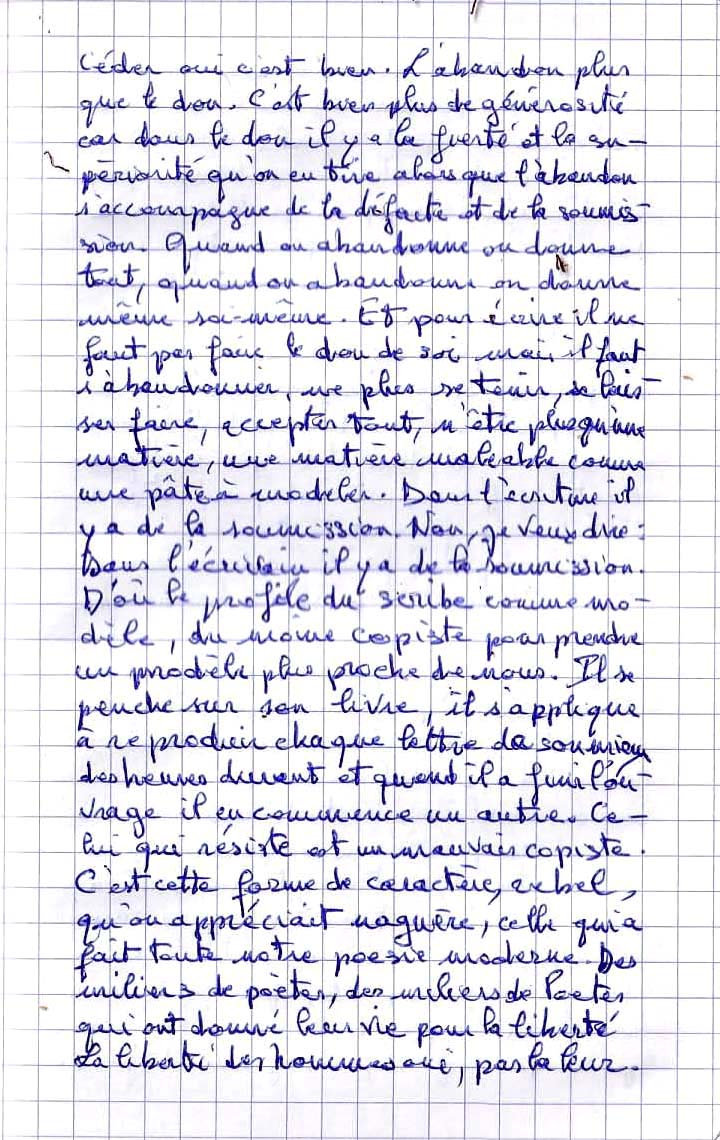 Céder oui c'est bien. L'abandon plus
que le don. C'est bien plus de générosité
car dans le don il y a la fierté et la su-
périorité qu'on en tire alors que l'abandon
s'accompagne de la défaite et de la soumis-
sion. Quand on abandonne on donne
tout, quand on abandonne on donne
même soi-même. Et pour écrire il ne
faut pas faire le don de soi mais il faut
s'abandonner, ne plus se tenir, se lais-
ser faire, accepter tout, n'être plus qu'une
matière, une matière maléable comme
une pâte à modeler. Dans l'écriture il
y a de la soumission. Non, je veux dire :
Dans l'écrivain il y a de la soumission.
D'où le profile du scribe comme mo-
dèle, du moine copiste pour prendre
un modèle plus proche de nous. Il se
penche sur son livre, il s'applique
à reproduire chaque lettre de son mieux
des heures durant et quand il a fini l'ou-
vrage il en commence un autre. Ce-
lui qui résiste est un mauvais copiste.
C'est cette forme de caractère, rebel,
qu'on appréciait naguère, celle qui a
fait toute notre poesie moderne. Des
miliers de poètes, des miliers de Poetes
qui ont donné leur vie pour la liberté
La liberté des hommes oui, pas la leur.